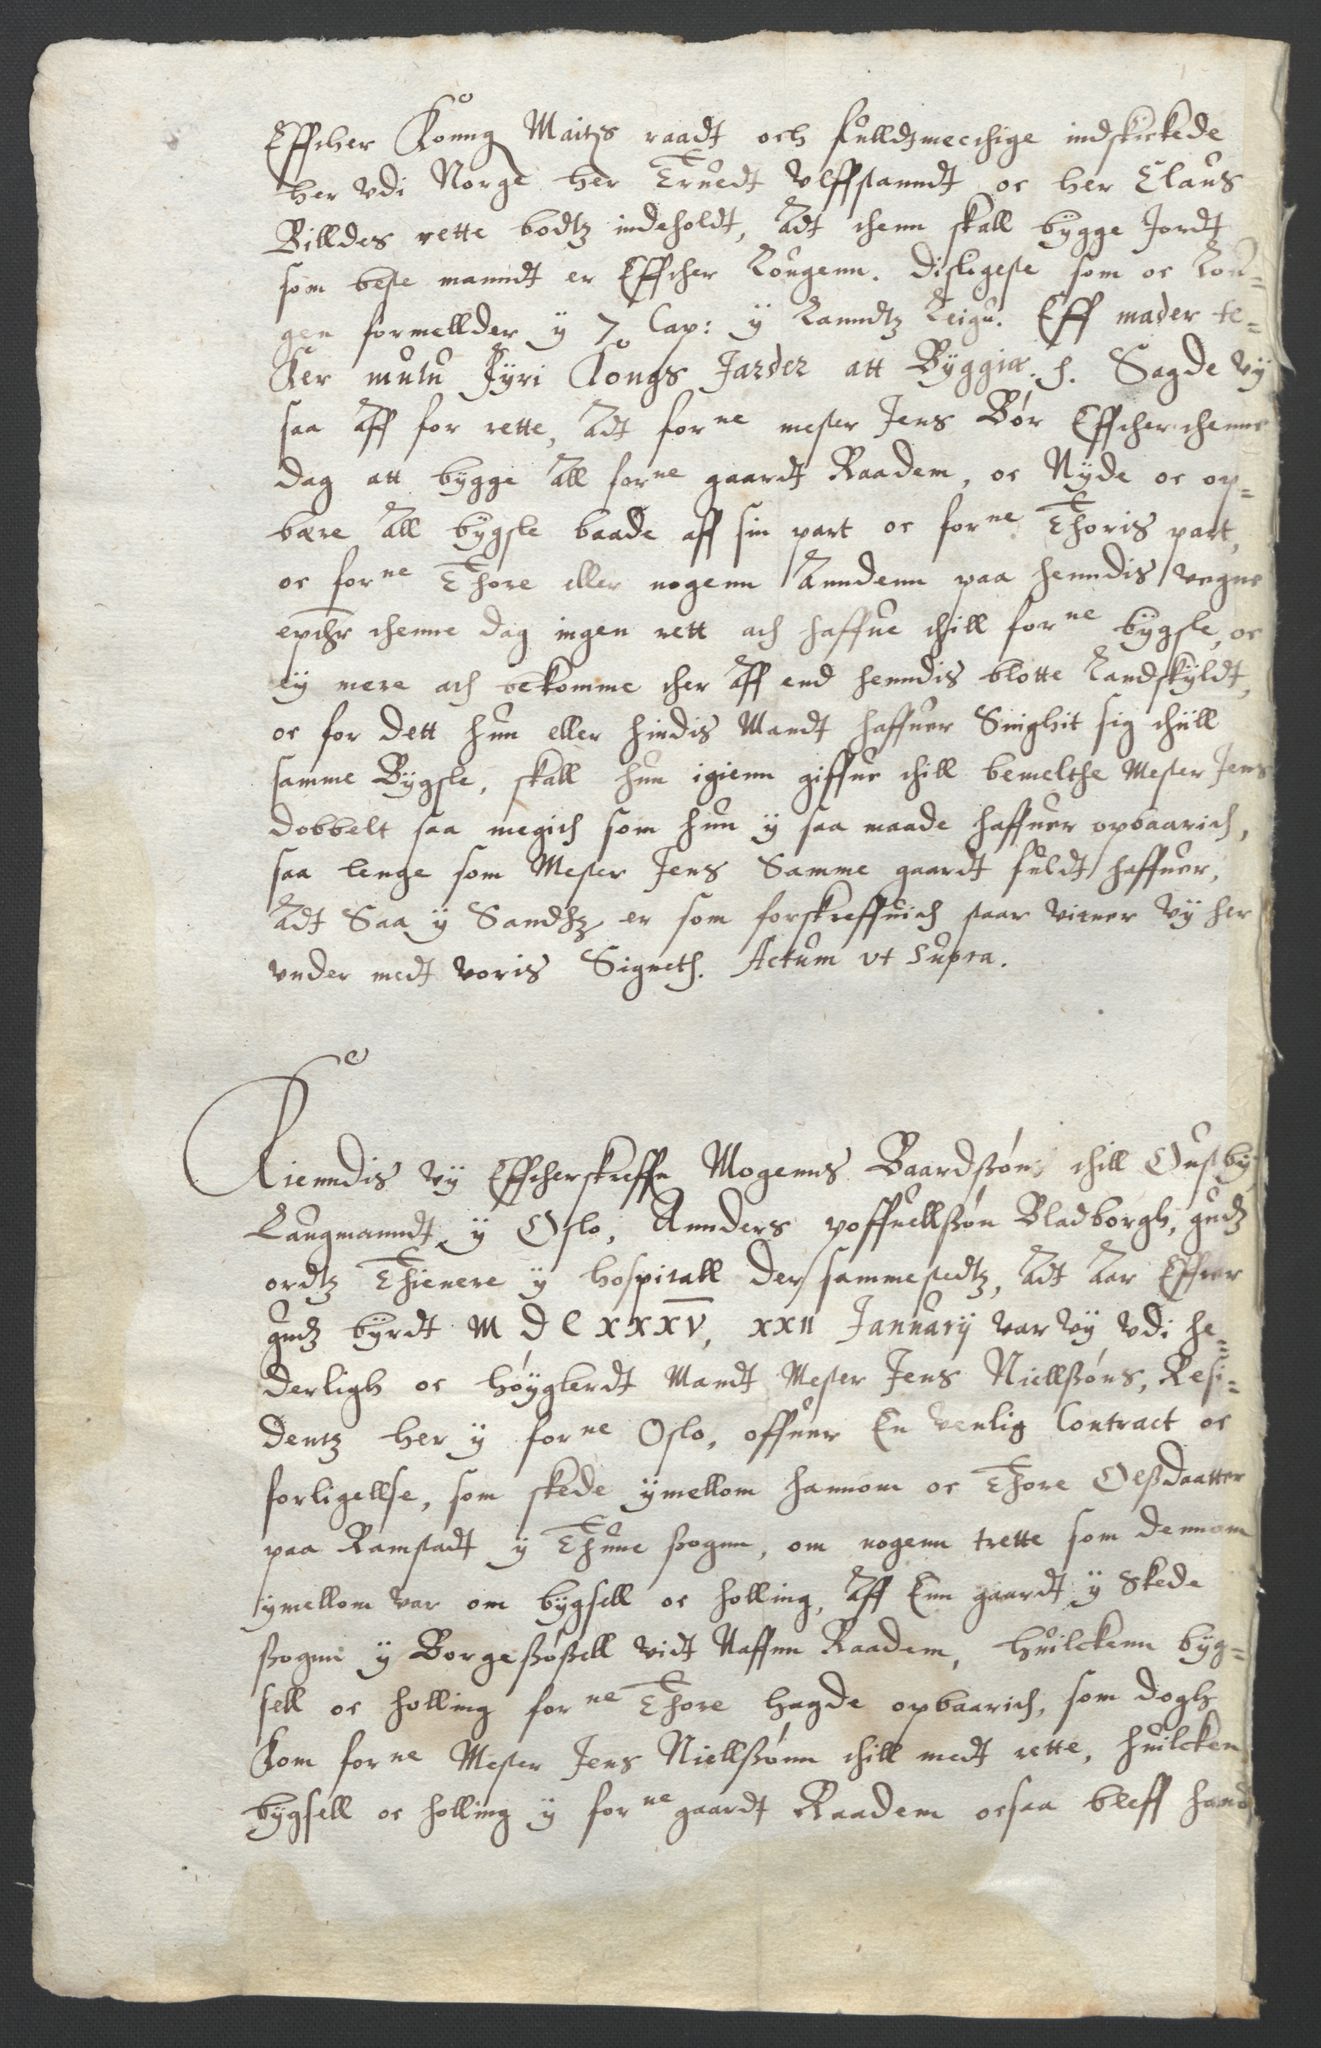 Effther Konng Maitzs raadt och fulldtmectthige indskickede
her vdi Norge her Truedt Vlffstanndt oc her Claus
Billdes rette bodtz indeholdt, Adt thenn skall bygge Jordt
som beste manndt er Effther Lougenn. disligeste som oc Lou-
gen formellder ÿ 7 Cap: ÿ Lanndtz Leigu. Eff mader te-
ker mutu fÿri Kongs Jarder att Byggia. h. Sagde vÿ
saa Aff for rette, Adt forne mester Jens Bør Effther thenne
dag att bygge All forne gaardt Raadem, oc Nÿde oc op-
bære All bygsle baade aff sin part oc forne Thoris part,
oc forne Thore eller nogenn Anndenn paa henndis vegne
epther thenne dag ingen rett ath haffue thill forne bÿgsle, oc
eÿ mere ath bekomme ther Aff end henndis blotte Landskÿldt,
oc for dett hun eller hindis Mandt haffuer Singhit sig thill
samme Bÿgsle, skall hun igienn giffue thill bemelthe Mester Jens
dobbelt saa megith som hun ÿ saa maade haffuer opbaarith,
saa lenge som Mester Jens Samme gaardt fuldt haffuer,
Adt Saa ÿ Sandhz er som forskreffuith staar vitner vÿ her
vnder medt voris Signeth. Actum vt supra.
Kienndis vÿ Efftherskreffne Mogenns Baardssøn thill Oustbÿ
Laugmanndt ÿ Oslo, Annders poffuellssøn Bladborgh, gudz
ordtz Thienere ÿ hospitall dersammestedtz, Adt Aar Effther
gudz bÿrdt M d C xxxv, xxII Januarij var vÿ vdi he-
derligh oc høÿglerdt Mandt Mester Jens Niellssøns, Resi-
dentz her ÿ forne Oslo, offuer En venlig Contract oc
forligellse, som skede ÿmellom hannom oc Thore Olssdaatter
paa Ramstadt ÿ Thune sogenn, om nogenn trette som dennom
ÿmellom var om bÿgsell oc holling, Aff Enn gaardt ÿ Skede
sogenn ÿ Borgessøssell vidt Naffnn Raadem, huilckenn bÿg-
sell oc holling forne Thore hagde opbaarith, som dogh
kom forne Mester Jens Niellssønn thill medt rette, huilcken
bÿgsell oc holling ÿ forne gaardt Raadem ocsaa bleff